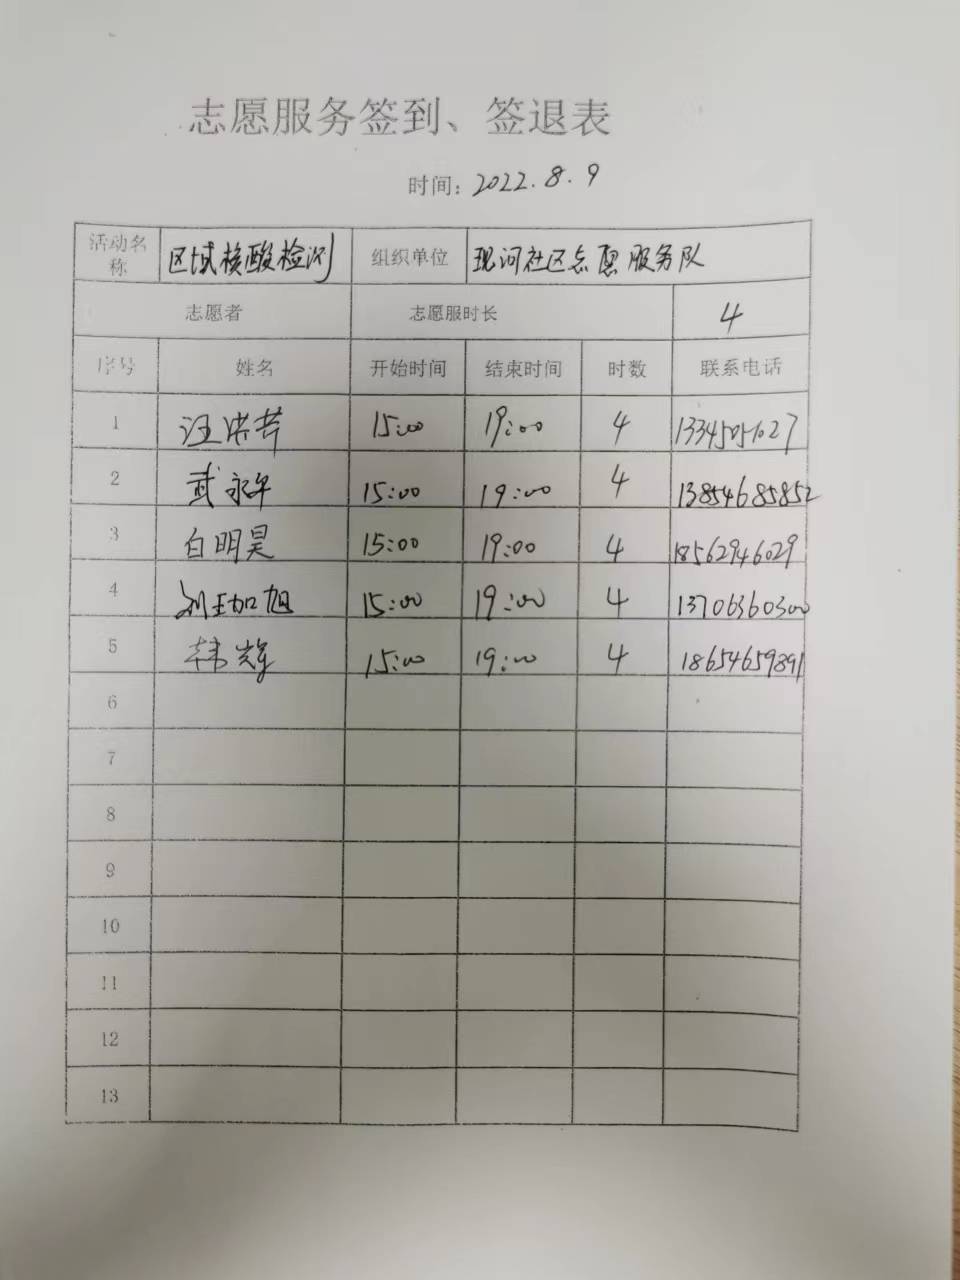 志愿服务签到、签退表
时间: 2022.8.9
活动名称 区域核酸检测 组织单位 现河社区志愿服务队
志愿者 志愿服时长 4
序号 姓名 开始时间 结束时间 时数 联系电话
1 汪洪芹 15:00 19:00 4 13345051027
2 武永军 15:00 19:00 4 13854685852
3 白明昊 15:00 19:00 4 18562946029
4 刘王加旭 15:00 19:00 4 13706360300
5 韩辉 15:00 19:00 4 18654659891
6
7
8
9
10
11
12
13